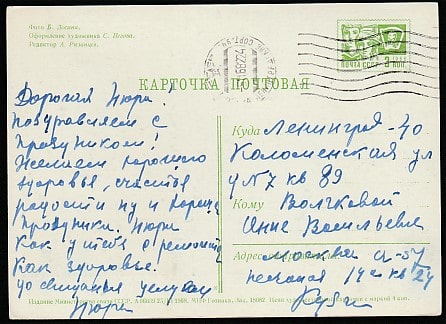 Фото Б.
Оформление художника С.
Редактор А.
ПОЧТА СССР
3 КОП.
КАРТОЧКА ПОЧТОВАЯ
Дорогая Нюра.
поздравляем с
праздником!
Желаем хорошего
здоровья, счастья
радости ну и хорошо
праздники. Нюра
как у тебя с ремонтом
как здоровье.
до свидания целуем
Нюра
Куда Ленинград-40
Коломенская ул
д N7 кв 89
Кому Волчковой
Анне Васильевне
Адрес
Москва А-57
песчаная кв 24
Издание Министерства связи СССР.